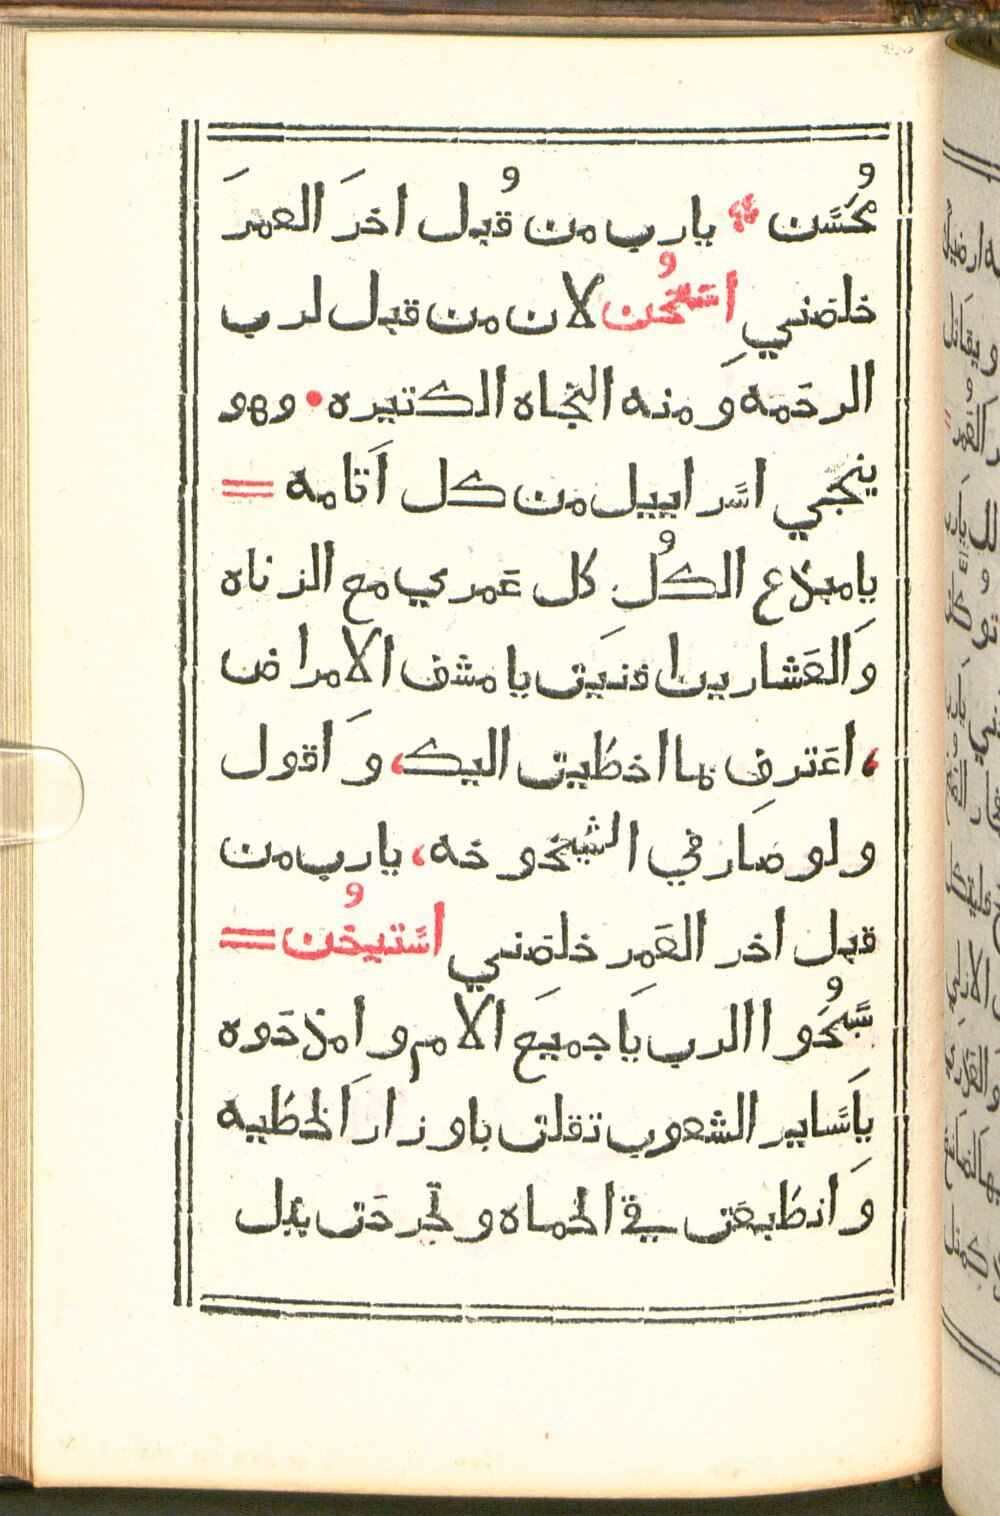 مُحَسَّن ⁘ يارب من قُبل اخرَ العمرَ
خلصني استيخُن لان من قبل لرب
الرحَمه وَمنه النجاه الكتيره • وهو
ينجي اسَّراييل من كل اَتامه =
يا مبدع الكُل كل عَمري مع الزناه
وَالعَشارين افنيَت يا مشف الامراض
، اعَترف ما اخطيت اليك، وَاقول
ولو صَار في الشيخوخه، يارب من
قبل اخر العَمر خلصَني اسَّتيخُن =
سَّبحُوا الرب يَا جميعَ الامم وامدحَوه
يَا سَّاير الشعوب تقلت باوزار اَلخطيه
وَانطبعَت في الحماه وتجرحَت بدل